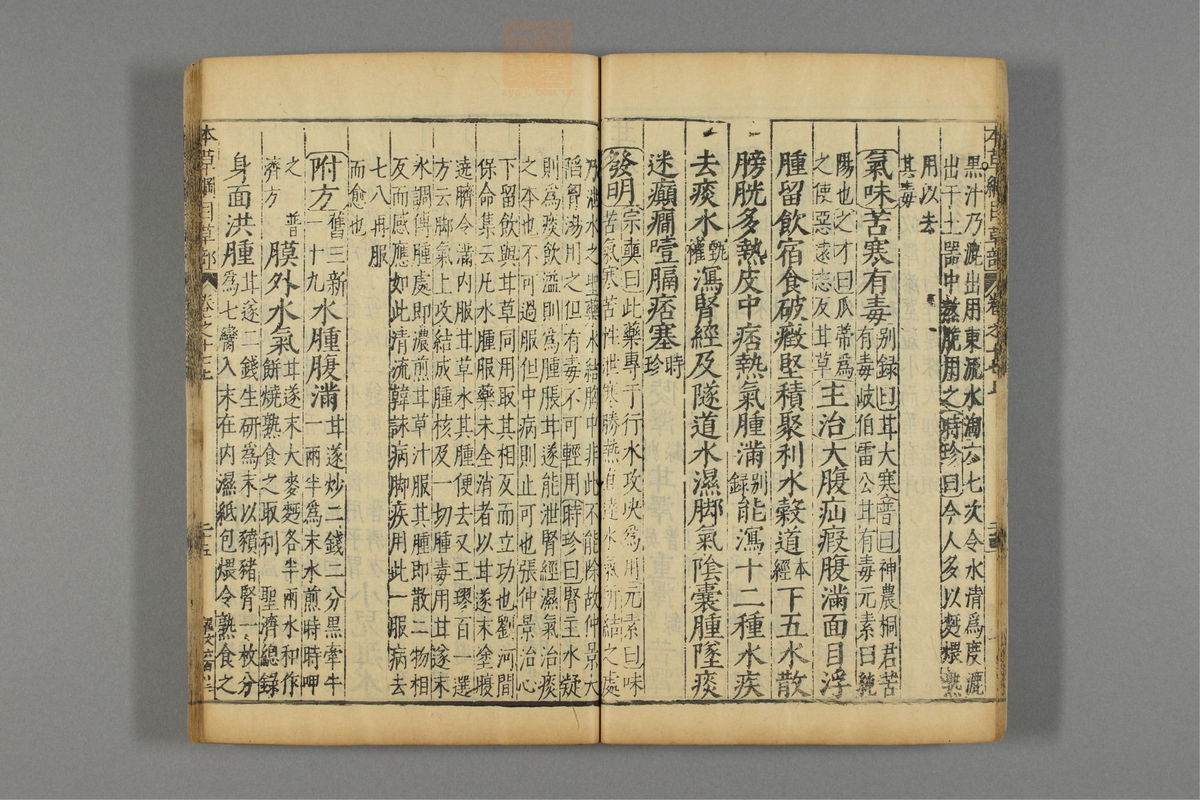 本草綱目草部 卷之十七上
黑汁乃漉出用東流水淘六七次令水清爲度漉
出于土器中熬脆用之時珍曰今人多以麪煨熟
用以去
其毒
氣味苦寒有毒別録曰甘大寒普曰神農桐君苦
有毒岐伯雷公甘有毒元素曰純
陽也之才曰瓜蒂爲
之使惡遠志反甘草
主治大腹疝瘕腹滿面目浮
腫留飲宿食破癥堅積聚利水穀道本經下五水散
膀胱多熱皮中痞熱氣腫滿別録能瀉十二種水疾
去痰水甄權瀉腎經及隧道水濕脚氣陰囊腫墜痰
迷癲癇噎膈痞塞時珍
發明宗奭曰此藥專于行水攻決爲用元素曰味
苦氣寒苦性泄寒勝熱直達水氣所結之處
乃泄水之聖藥水結胸中非此不能除故仲景大
陷胷湯用之但有毒不可輕用時珍曰腎主水疑
則爲痰飲溢則爲腫脹甘遂能泄腎經濕氣治痰
之本也不可過服但中病則止可也張仲景治心
下留飲與甘草同用取其相反而立功也劉河間
保命集云凡水腫服藥未全消者以甘遂末塗腹
遶臍令滿内服甘草水其腫便去又王璆百一選
方云脚氣上攻結成腫核及一切腫毒用甘遂末
水調傅腫處即濃煎甘草汁服其腫即散二物相
反而感應如此清流韓詠病脚疾用此一服病去
七八再服
而愈也
附方舊三新
一十九
水腫腹滿甘遂炒二錢二分黑牽牛
一兩半爲末水煎時時呷
之 普
濟方
膜外水氣甘遂末大麥麪各半兩水和作
餅燒熟食之取利 聖濟總録
身面洪腫甘遂二錢生研爲末以豬腎一枚分
爲七臠入末在内濕紙包煨令熟食之
本草綱目草部 卷之十七上
二十五